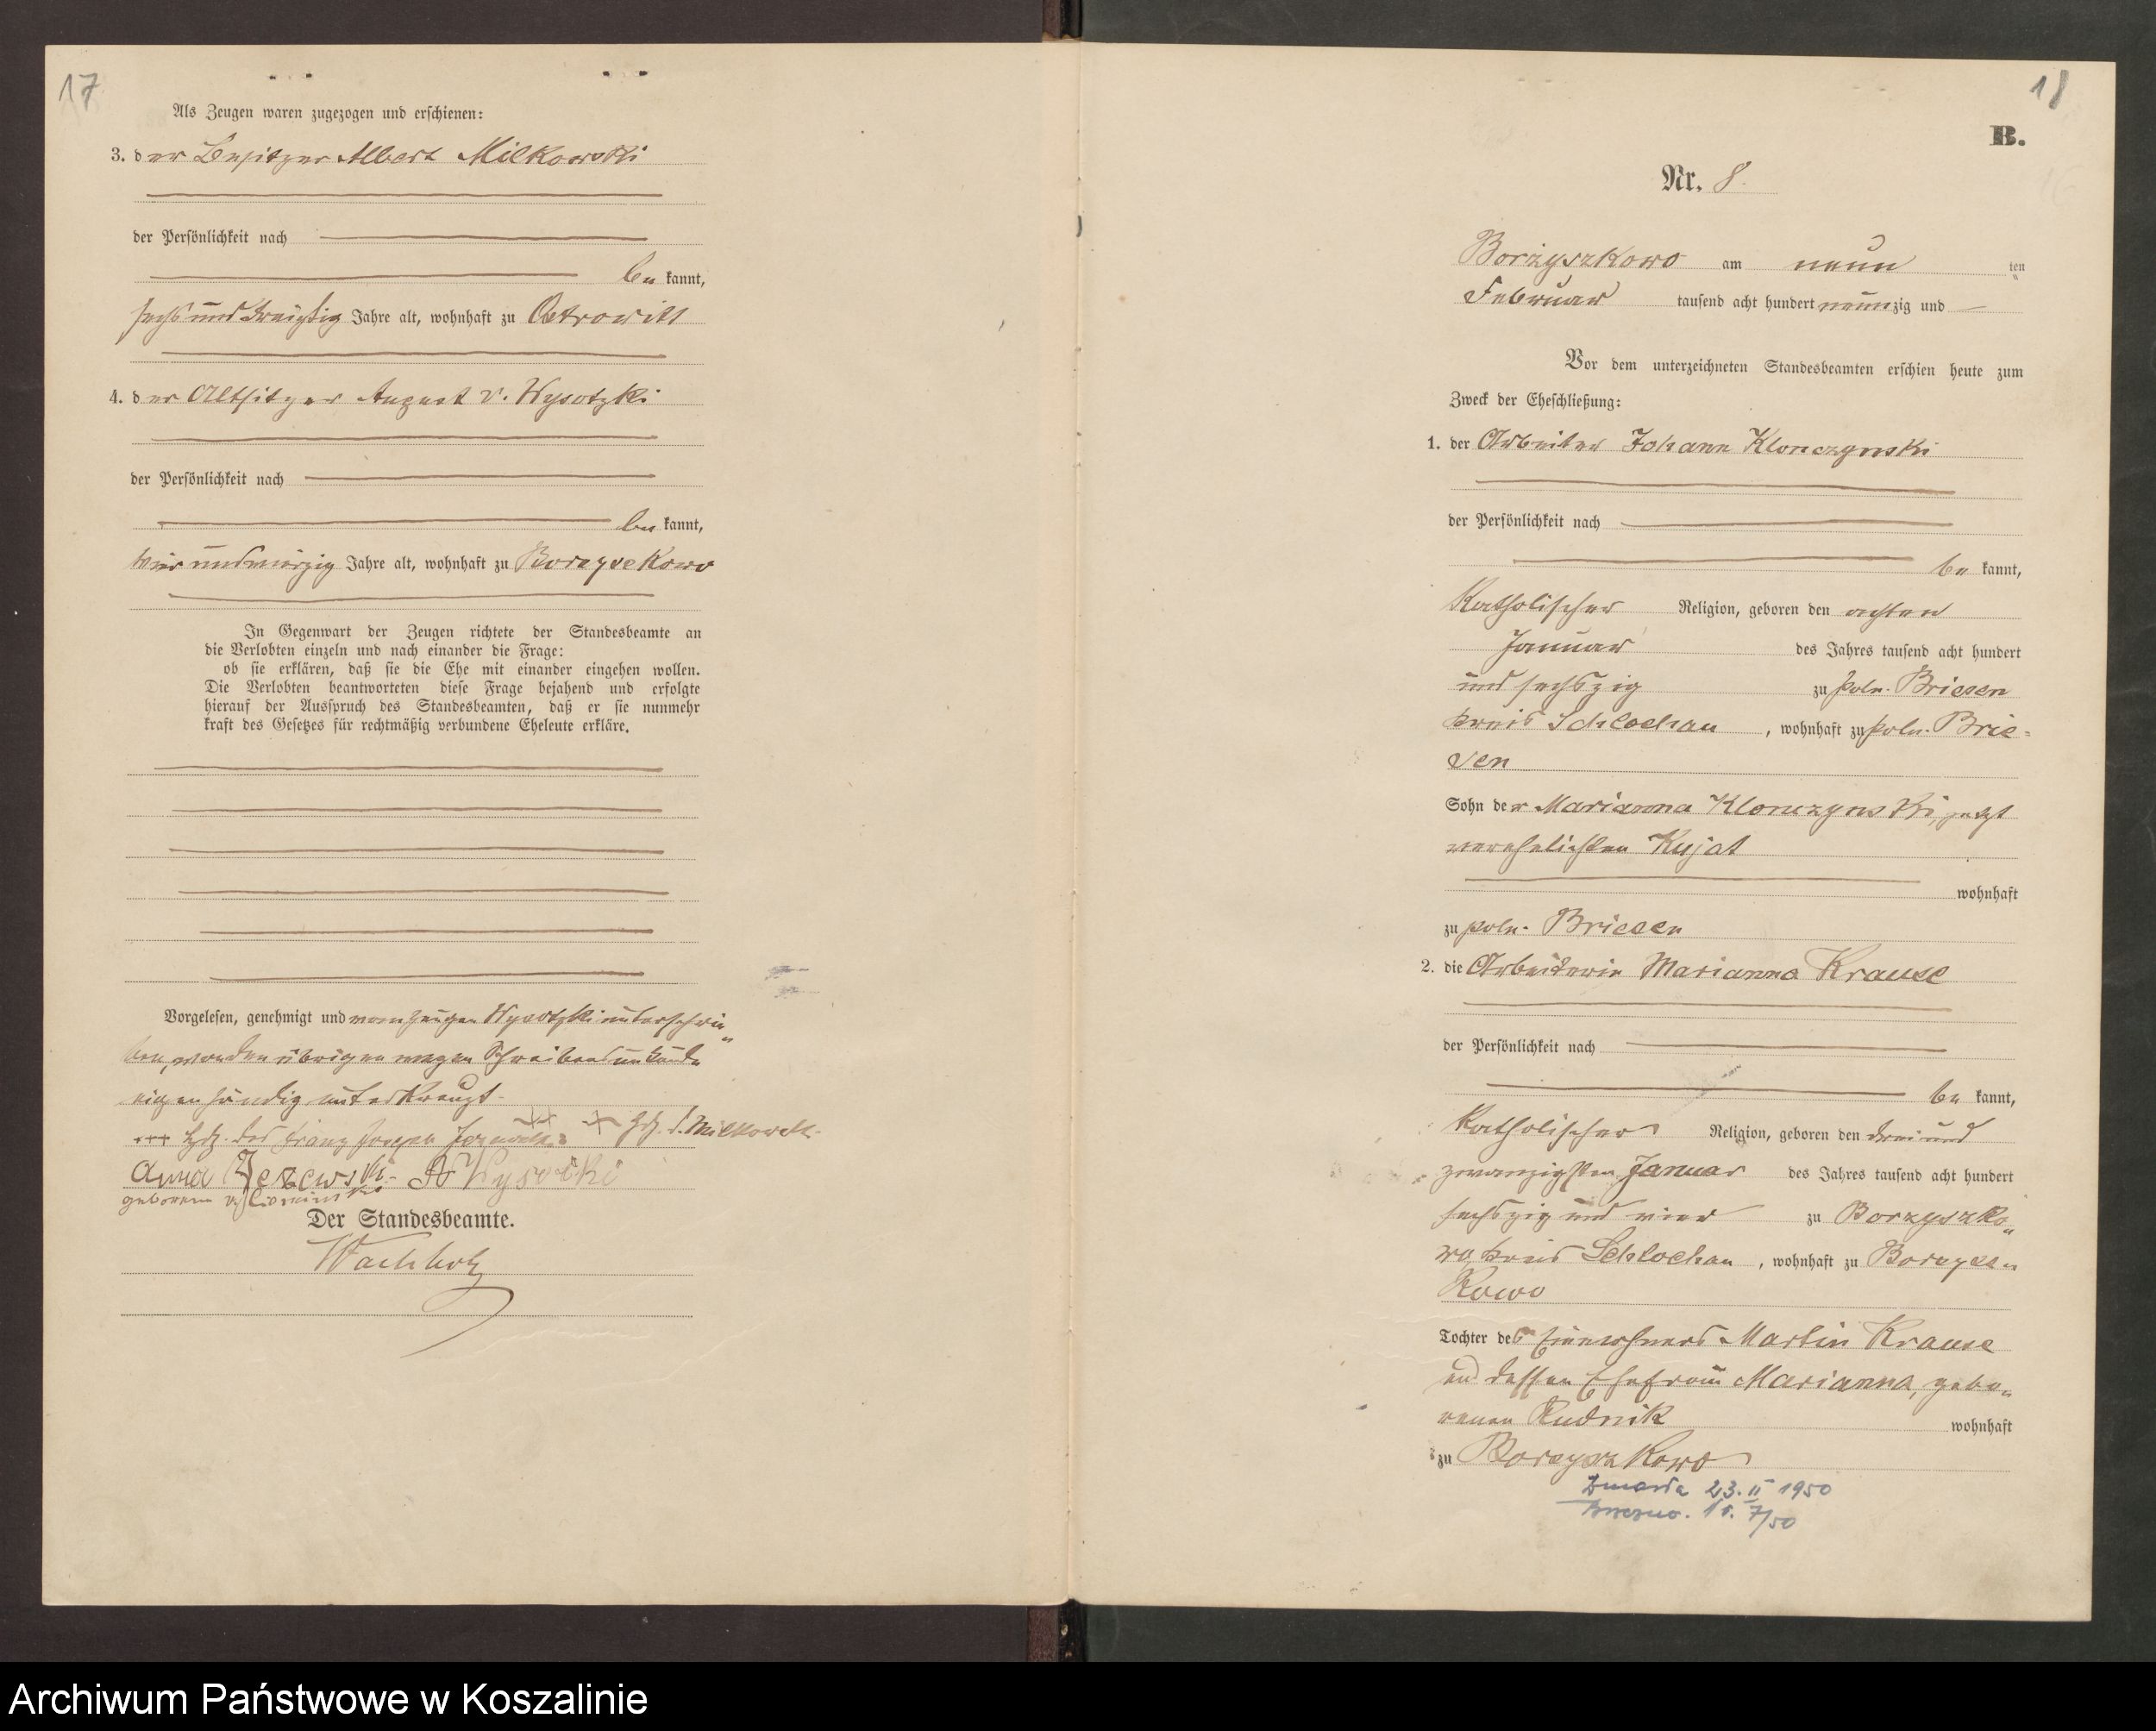 17
Als Zeugen waren zugezogen und erschienen:
3. der Besitzer Albert Milkowski
der Persönlichkeit nach
be kannt,
sechs und dreißig Jahre alt, wohnhaft zu Ostrowitt
4. der Altsitzer August v. Wysotzki
der Persönlichkeit nach
be kannt,
vier und vierzig Jahre alt, wohnhaft zu Borzyskowo
In Gegenwart der Zeugen richtete der Standesbeamte an
die Verlobten einzeln und nach einander die Frage:
ob sie erklären, daß sie die Ehe mit einander eingehen wollen.
Die Verlobten beantworteten diese Frage bejahend und erfolgte
hierauf der Ausspruch des Standesbeamten, daß er sie nunmehr
kraft des Gesetzes für rechtmäßig verbundene Eheleute erkläre.
Vorgelesen, genehmigt und vom Zeugen Wysotzki unterschrie
ben, von den übrigen wegen Schreibens unkunde
eigenhändig unterkreuzt.
+++ Hdz. des Franz Joseph Hdz. d. Milkowski
Anna A Wysocki
geborene v.
Der Standesbeamte.
Wachholz
18
B.
Nr. 8.
Borzyszkowo am neun ten
Februar tausend acht hundert neunzig und
Vor dem unterzeichneten Standesbeamten erschien heute zum
Zweck der Eheschließung:
1. der Arbeiter Johann Klonczynski
der Persönlichkeit nach
be kannt,
Katholischer Religion, geboren den achten
Januar des Jahres tausend acht hundert
und sechszig zu poln. Briesen
Kreis Schlochau, wohnhaft zu poln. Brie-
sen
Sohn der Marianna Klonczynski, jetzt
verehelichten Kujat
wohnhaft
zu poln. Briesen
2. die Arbeiterin Marianna Krause
der Persönlichkeit nach
be kannt,
Katholischer Religion, geboren den drei und
zwanzigsten Januar des Jahres tausend acht hundert
sechszig und vier zu Borzyszko
wo, Kreis Schlochau, wohnhaft zu Borzysz
kowo
Tochter des Einwohners Martin Krause
und dessen Ehefrau Marianna, gebo
renen Rudnik wohnhaft
zu Borzyszkowo
Zmarła 23. II 1950
Brzezno. 15. 7/50
Archiwum Państwowe w Koszalinie